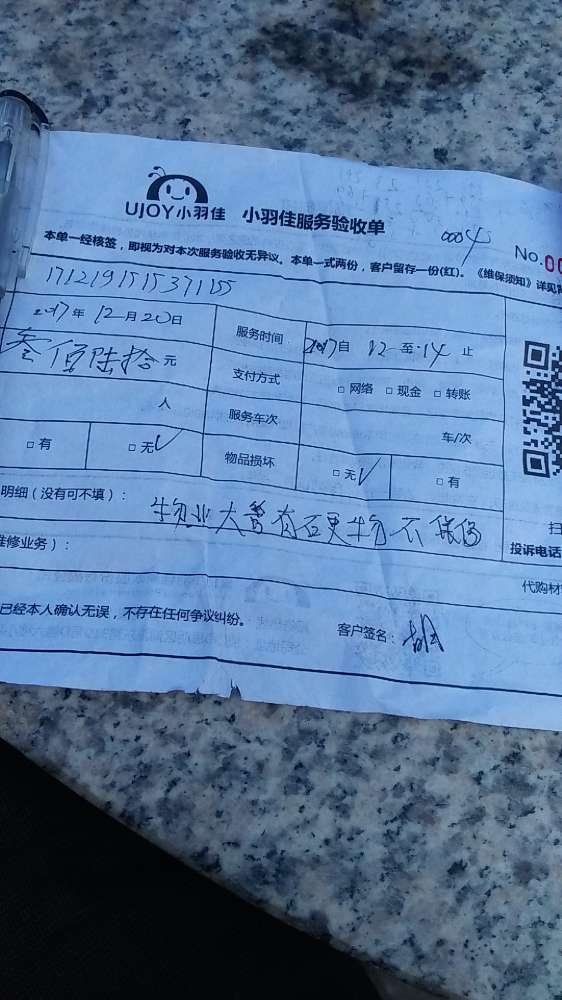 UJOY小羽佳 小羽佳服务验收单
0004
No.00
本单一经核签，即视为对本次服务验收无异议。本单一式两份，客户留存一份(红)。《维保须知》详见背
1712191515371155
2017年12月20日 服务时间 2017自12至14止
叁佰陆拾元 支付方式 □网络 □现金 □转账
人 服务车次 车/次
□有 □无√ 物品损坏 □无√ □有
明细（没有可不填）： 物业大 有石更物不
维修业务）： 投诉电话
代购材
已经本人确认无误，不存在任何争议纠纷。 客户签名：胡